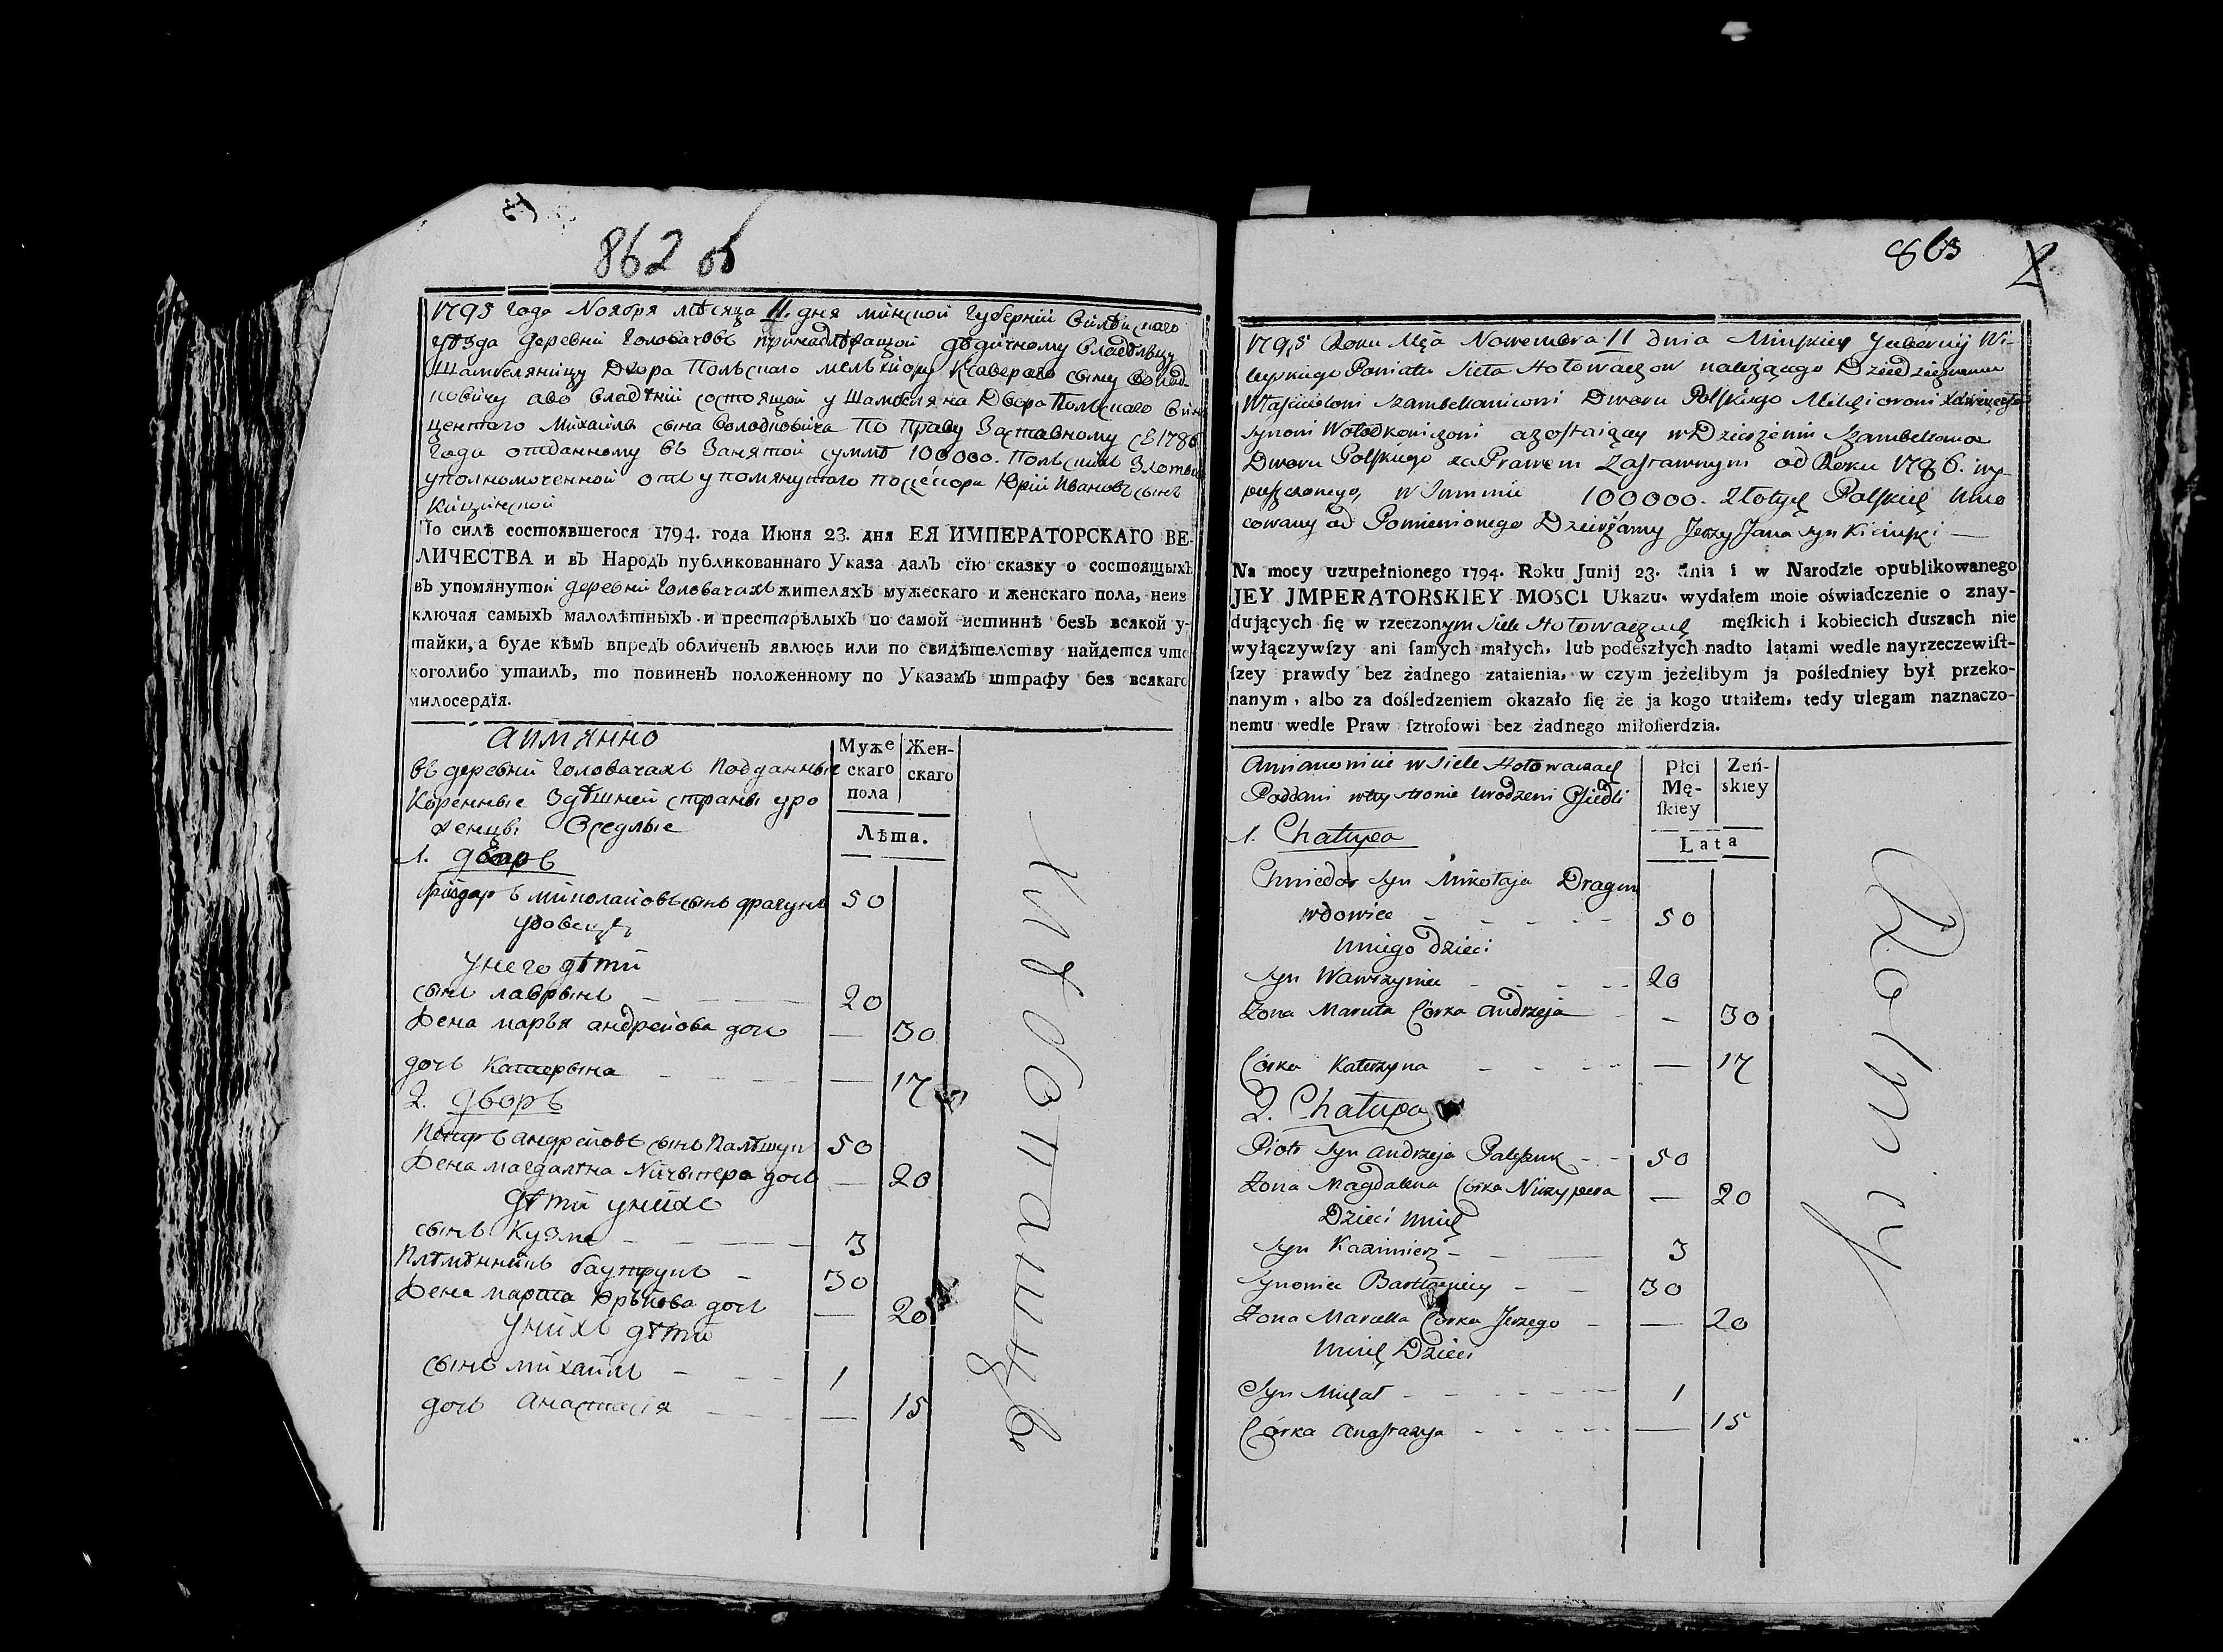 862 об
1795 года Ноября мѣсяца 11. дня минской Губерніи Вилѣйскаго
уѣзда деревни Головачовъ принадлѣжащой дѣдичному владѣльцу
Шамбеляницу Двора Польскаго мельхіору Ксаверого сыну Волод
ковичу аво владѣніи состоящой у Шамбеляна Двора Польскаго Вин
центаго Михаила сына Володковича По Праву Заставному съ 1786
года отданному въ Занятой суммѣ 100000. Польскихъ Злотыхъ
уполномоченной отъ упомянутого поссесора Юрій Ивановъ сынъ
Кицинской
По силѣ состоявшегося 1794. года Іюня 23. дня ЕЯ ИМПЕРАТОРСКАГО ВЕ-
ЛИЧЕСТВА и въ НародЪ публикованнаго Указа далЪ сїю сказку о состоящыхЪ
въ упомянутой деревни Головачахъ жителяхЪ мужескаго и женскаго пола, неиз
ключая самыхЪ малолѣтныхЪ и престарѣлыхЪ по самой истиннѣ безЪ всякой у-
тайки, а буде кѣмЪ впредЪ обличенЪ явлюсь или по свидѣтелству найдется что
коголибо утаилЪ, то повиненЪ положенному по УказамЪ штрафу без всякаго
милосердїя.
аимянно
въ деревни Головачахъ Подданные
Коренные Здѣшней страны уро
женцы Оседлые
Муже
скаго
пола
Жен-
скаго
Лѣта.
1. дворъ
миколаіовъ сынъ драгунъ 50
удовецъ
унего дѣти
сынъ лаврынъ — 20
Жена марья андреіова дочь — 30
дочь Катерына — 17
2. дворъ
Петръ андреіовъ сынъ Палѣшукъ 50
Жена магдалѣна Ничыпера дочь — 20
дѣти унихъ
сынъ Кузма — 3
Племѣнникъ — 30
Жена марта Юрьева дочь — 20
унихъ дѣти
сынъ михайло — 1
дочь Анастасія — 15
863
1795 Roku Mca Nowembra 11 dnia Minskiey Guberniy Wi-
leyskiego Powiatu Sieła Hołowaczow należącego Dziedzicznemu
Właścicielowi Szambellanicowi Dworu Polskiego Melchiorowi Xawerego
synowi Wołodkowiczowi azostaiącey w Dzierżeniu Szambellana
Dworu Polskiego za Prawem Zastawnym od Roku 1786. wy-
puszczonego, w Summie 100000. Złotych Polskich Umo
cowany od Pomienionego Dzierżawy Jerzy Jana syn Kicinski —
Na mocy uzupełnionego 1794. Roku Junij 23. dnia i w Narodzie opublikowanego
JEY JMPERATORSKIEY MOSCI Ukazu, wydałem moie oświadczenie o znay-
dujących ſię w rzeczonym Siele Hołowaczach męſkich i kobiecich duszach nie
wyłączywſzy ani ſamych małych, lub podeszłych nadto latami wedle nayrzeczewiſt-
ſzey prawdy bez żadnego zataienia, w czym jeżelibym ja pośledniey był przeko-
nanym, albo za dośledzeniem okazało ſię że ja kogo utaiłem, tedy ulegam naznaczo-
nemu wedle Praw ſztrofowi bez żadnego miłoſierdzia.
Amianowicie w Siele Hołowaczach
Poddani w tey stronie Urodzeni Osiedli
Płci
Mę-
ſkiey
Zeń-
skiey
Lata
1. Chałupa
syn Mikołaja Dragun
wdowiec — 50
Uniego dzieci
Syn Wawrzyniec — 20
Zona Maruta Córka Andrzeja — 30
Córka Katerzyna — 17
2. Chałupa
Piotr Syn Andrzeja Paleszuk — 50
Zona Magdalena Córka Niczypera — 20
Dzieci Unich
Syn Kazimierz — 3
Synowiec Bartłomiey — 30
Zona Marcella Córka Jerzego — 20
Unich Dzieci
Syn Michał — 1
Córka Anastazya — 15